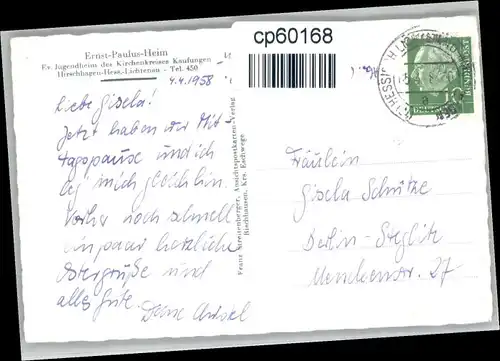 Ernst-Paulus-Heim
Ev. Jugendheim des Kirchenkreises Kaufungen
Hirschhagen-Hess.-Lichtenau - Tel. 450
4.4.1958
Liebe Gisela!
Jetzt haben wir Mit
tagspause und ich
leg mich gleich hin.
Vorher noch schnell
ein paar herzliche
Ostergrüße und
alles Gute. Deine
Franz Streitenberger, Ansichtspostkarten-Verlag
Bischhausen, Krs. Eschwege
cp60168
DEUTSCHE BUNDESPOST
10
Fräulein
Gisela Schütze
Berlin-Steglitz
27